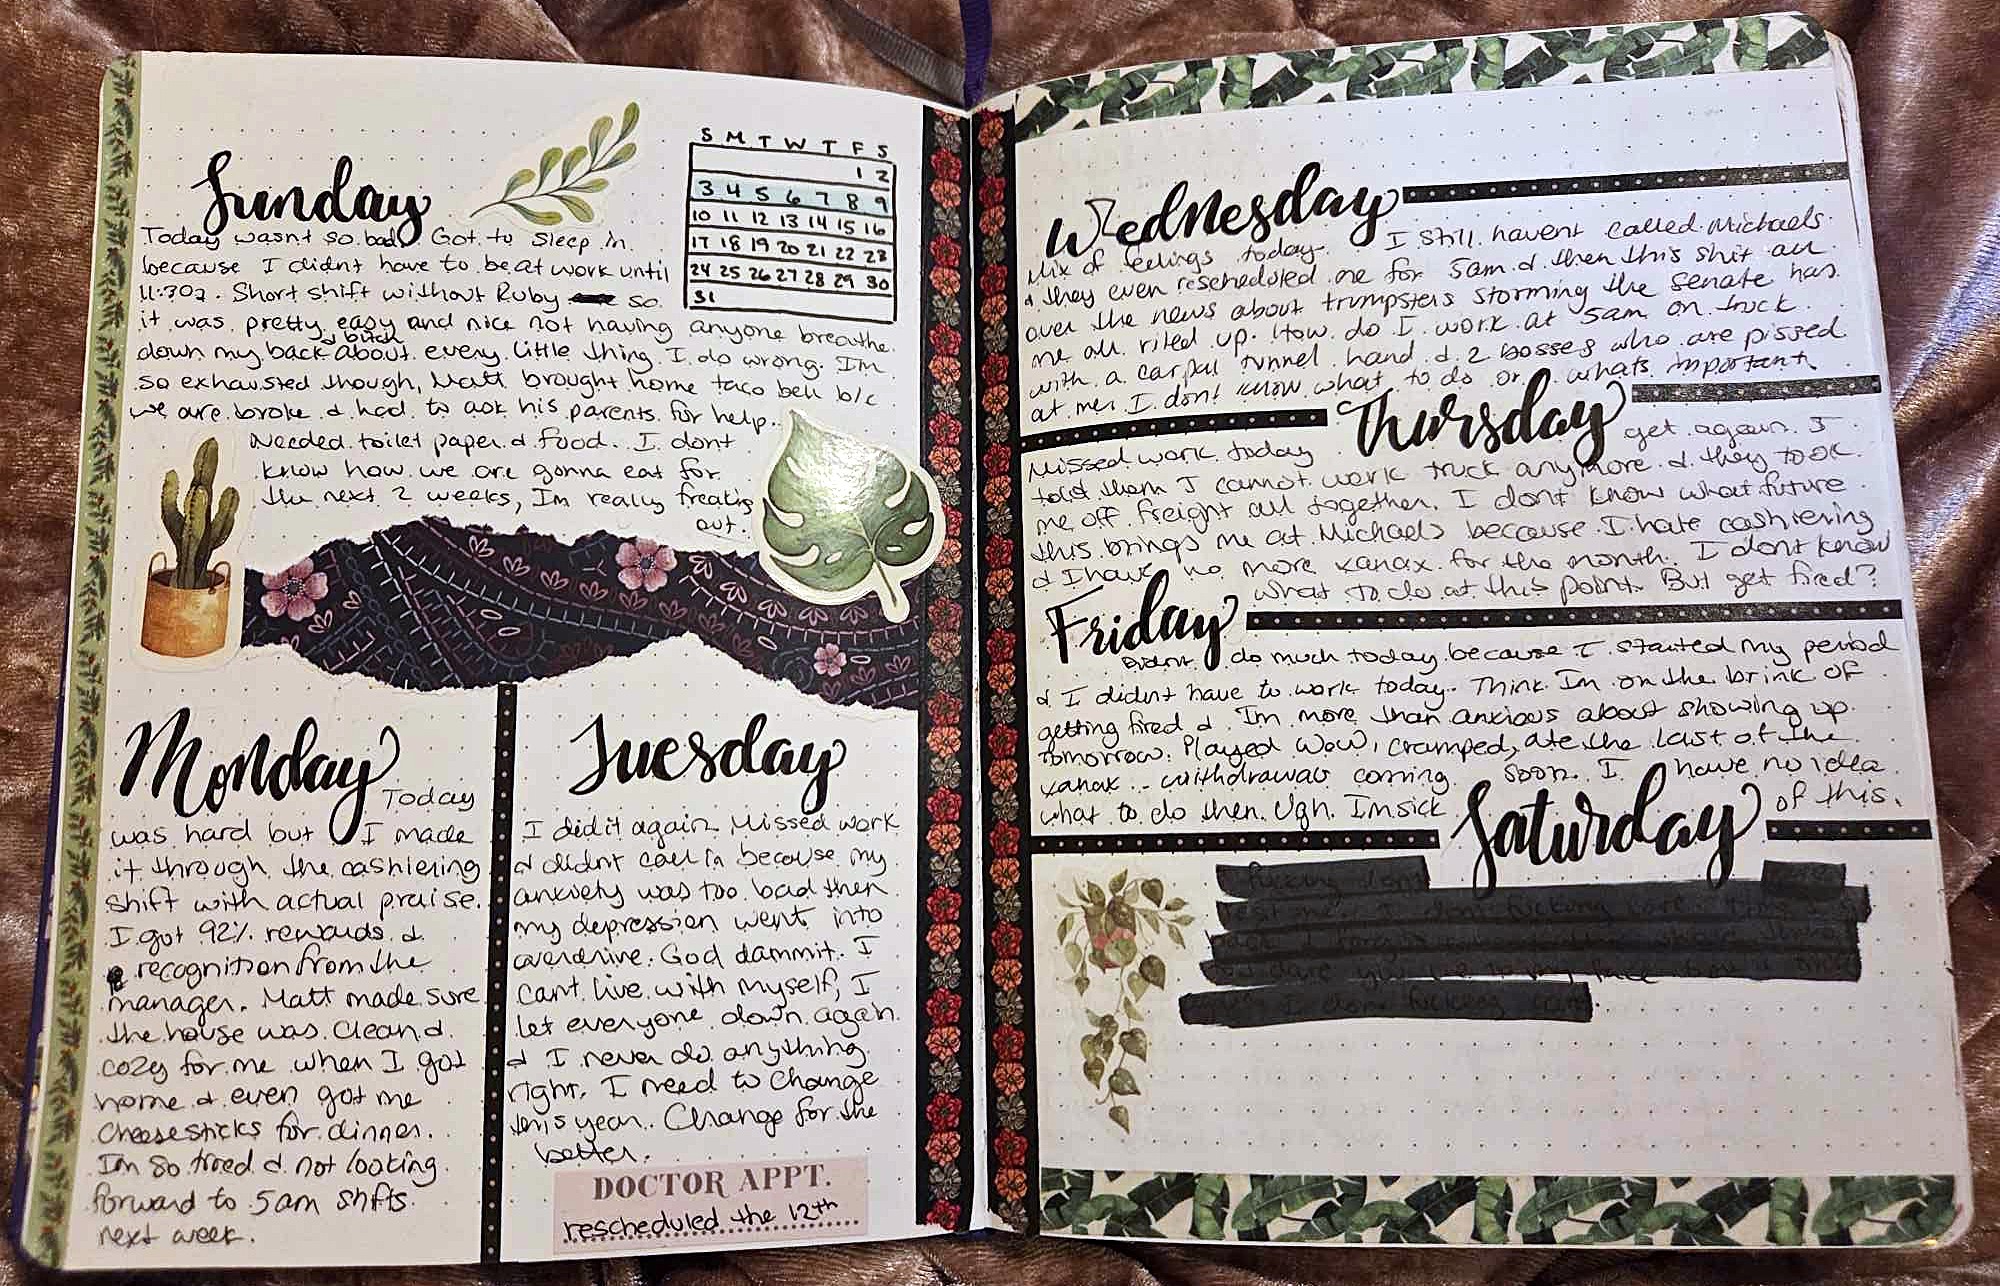 Sunday
S M T W T F S
1 2
3 4 5 6 7 8 9
10 11 12 13 14 15 16
17 18 19 20 21 22 23
24 25 26 27 28 29 30
31
Today wasnt so bad. Got to sleep in
because I didnt have to be at work until
11:30a. Short shift without Ruby so
it was pretty easy and nice not having anyone breathe
& bitch
down my back about every little thing I do wrong. Im
so exhausted though, Matt brought home taco bell b/c
we are broke & had to ask his parents for help.
Needed toilet paper & food. I dont
know how we are gonna eat for
the next 2 weeks, Im really freaking
out.
Monday
Today
was hard but I made
it through the cashiering
shift with actual praise.
I got 92% rewards &
recognition from the
manager. Matt made sure
the house was clean &
cozy for me when I got
home & even got me
cheesesticks for dinner.
Im so tired & not looking
forward to 5am shfts
next week.
Tuesday
I did it again. Missed work
& didnt call in because my
anxiety was too bad then
my depression went into
overdrive. God dammit. I
cant live with myself, I
let everyone down again
& I never do anything
right. I need to change
this year. Change for the
better.
DOCTOR APPT.
rescheduled the 12th
Wednesday
Mix of feelings today. I still havent called Michaels
& they even rescheduled me for 5am & then this shit all
over the news about trumpsters storming the senate has
me all riled up. How do I work at 5am on truck
with a carpal tunnel hand & 2 bosses who are pissed
at me. I dont know what to do or whats important
Thursday
Missed work today get again. I
told them I cannot work truck anymore & they took
me off freight all together. I dont know what future
this brings me at Michaels because I hate cashiering
& I have no more xanax for the month. I dont know
what to do at this point. But get fired?
Friday
do much today because I started my period
& I didnt have to work today. Think Im on the brink of
getting fired & Im more than anxious about showing up
tomorrow. Played WoW, cramped, ate the last of the
xanax.. withdrawals coming soon. I have no idea
what to do then. Ugh. Im sick of this.
Saturday
fucking dont
I dont fucking care
I dont fucking care.